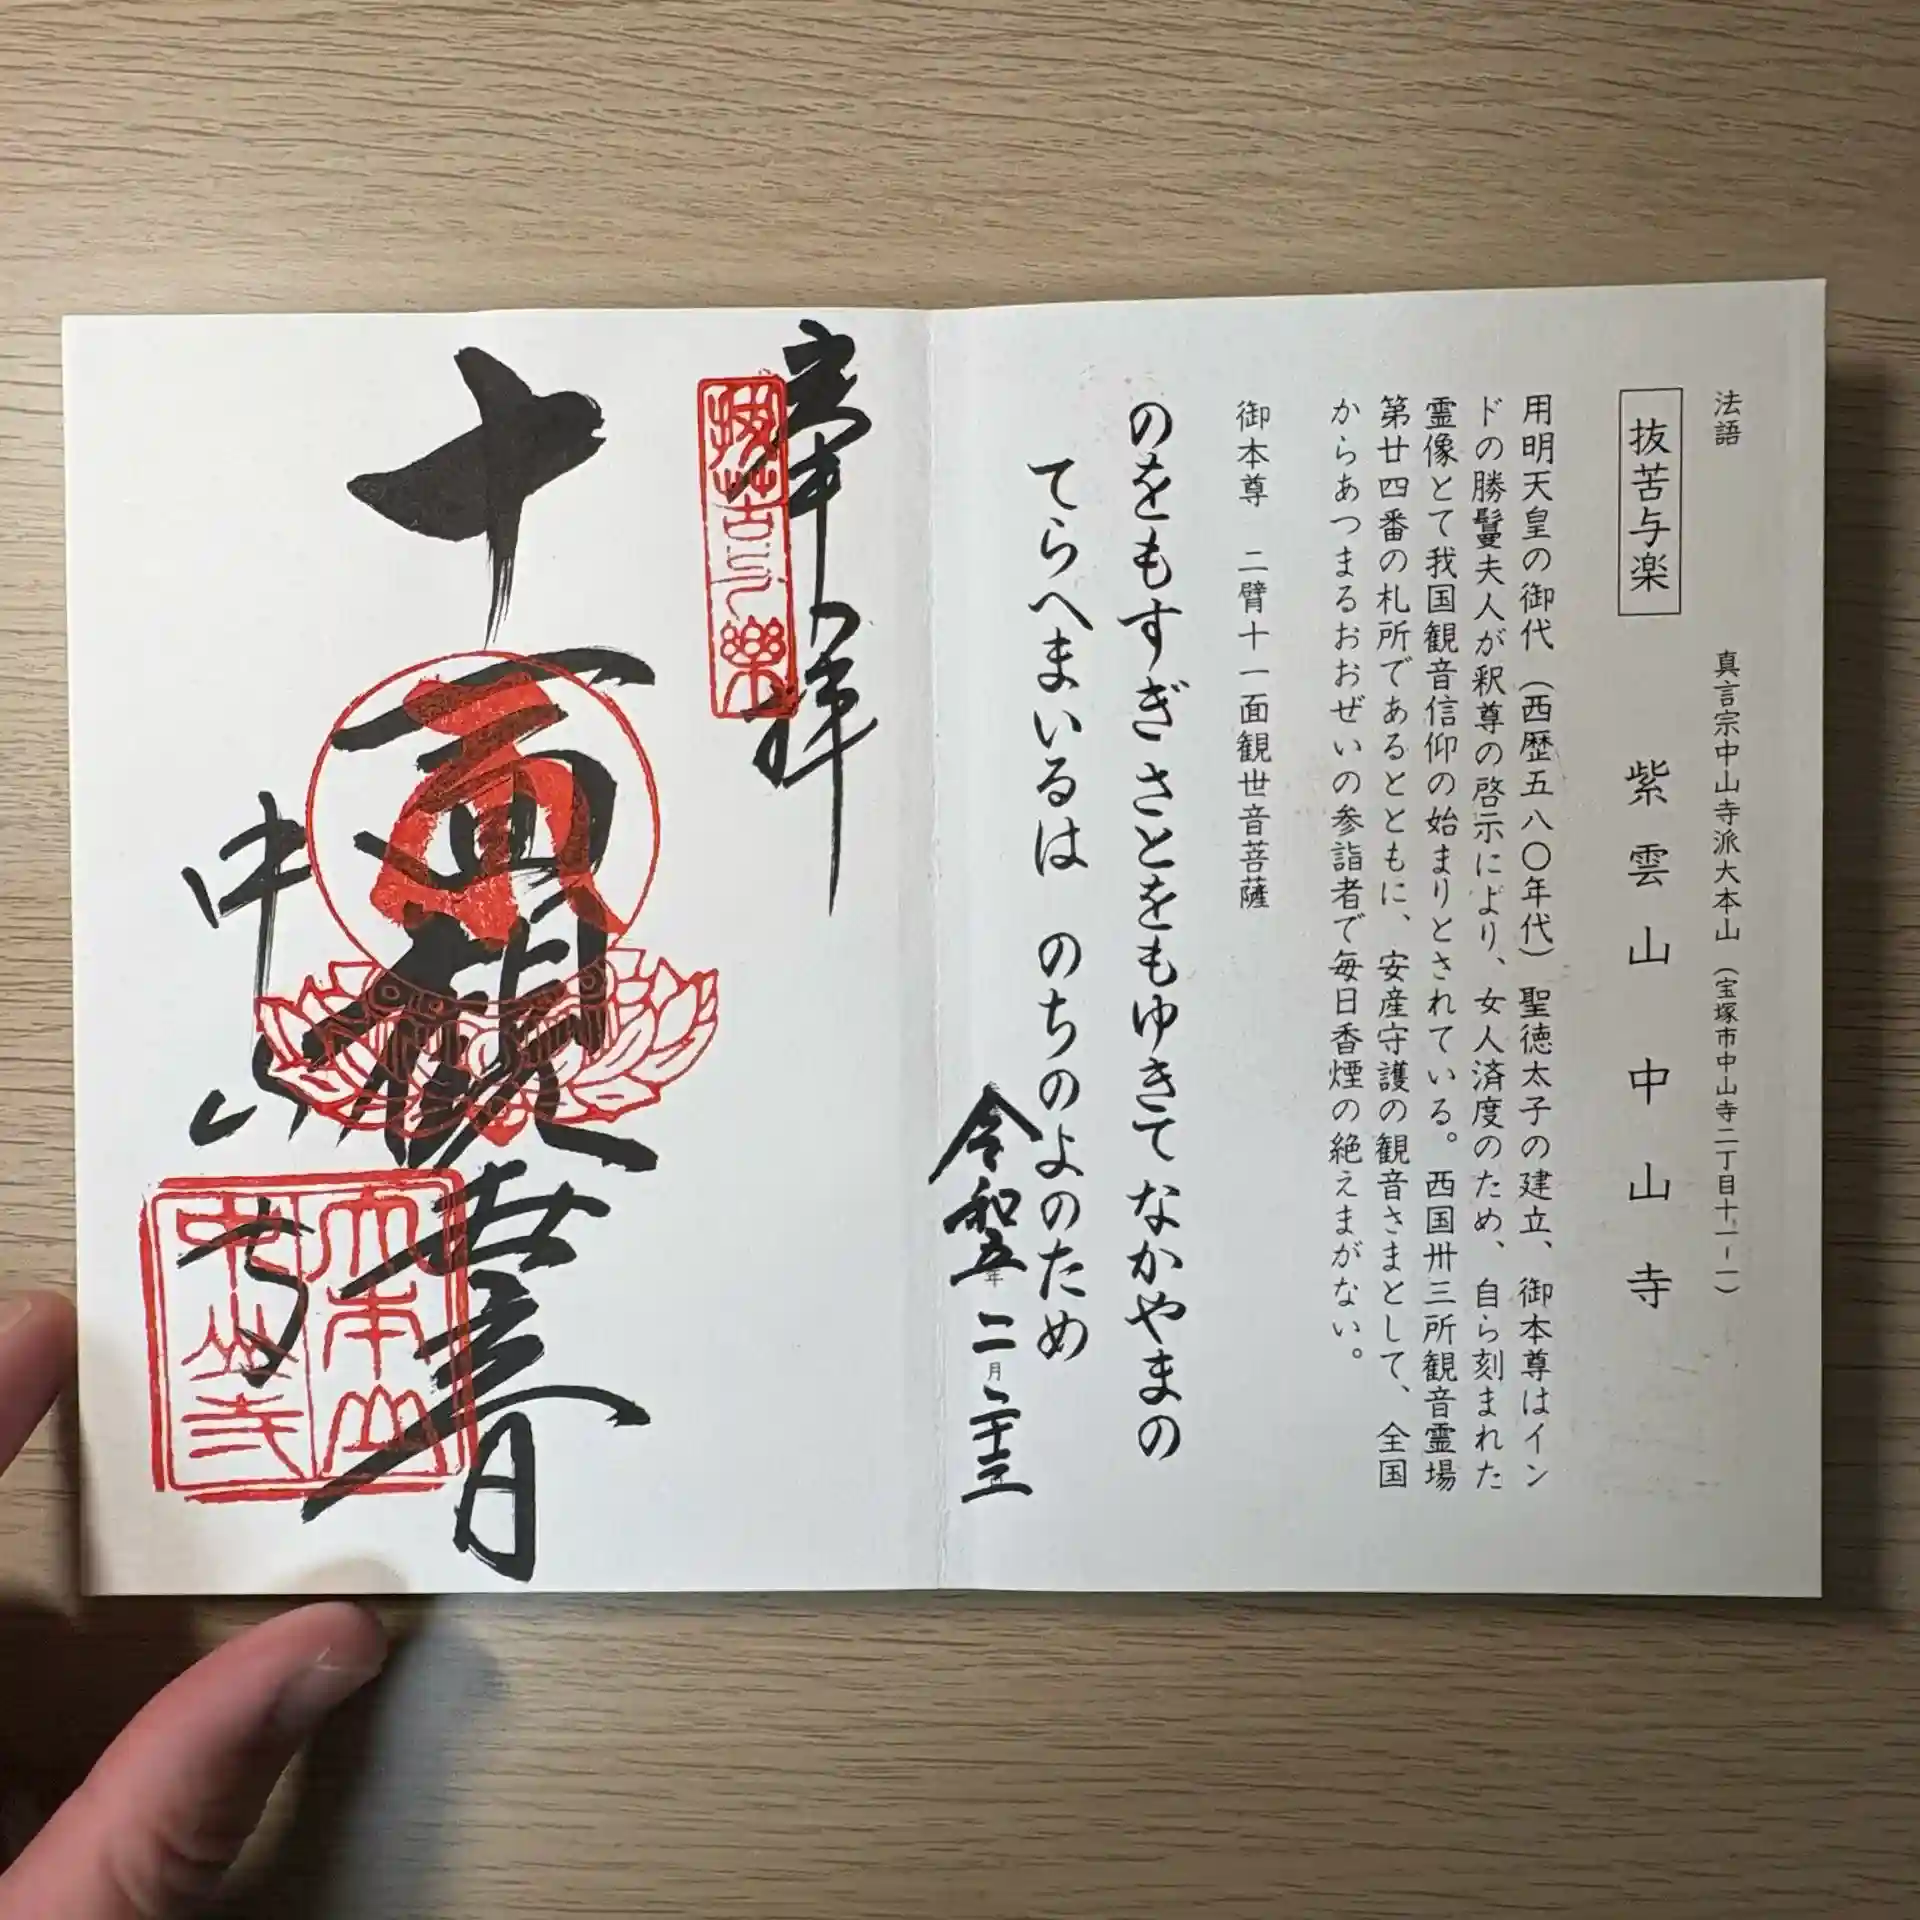 法語
真言宗中山寺派大本山（宝塚市中山寺二丁目十一-一）
抜苦与楽
紫雲山中山寺
用明天皇の御代（西歴五八〇年代）聖徳太子の建立、御本尊はイン
ドの勝鬘夫人が釈尊の啓示により、女人済度のため、自ら刻まれた
霊像とて我国観音信仰の始まりとされている。西国卅三所観音霊場
第廿四番の札所であるとともに、安産守護の観音さまとして、全国
からあつまるおおぜいの参詣者で毎日香煙の絶えまがない。
御本尊 二臂十一面観世音菩薩
のをもすぎ さとをもゆきて なかやまの
てらへまいるは のちのよのため
令和五年二月二十三
奉拝
抜苦与樂
十一面観世音
中山寺
大本山
中山寺